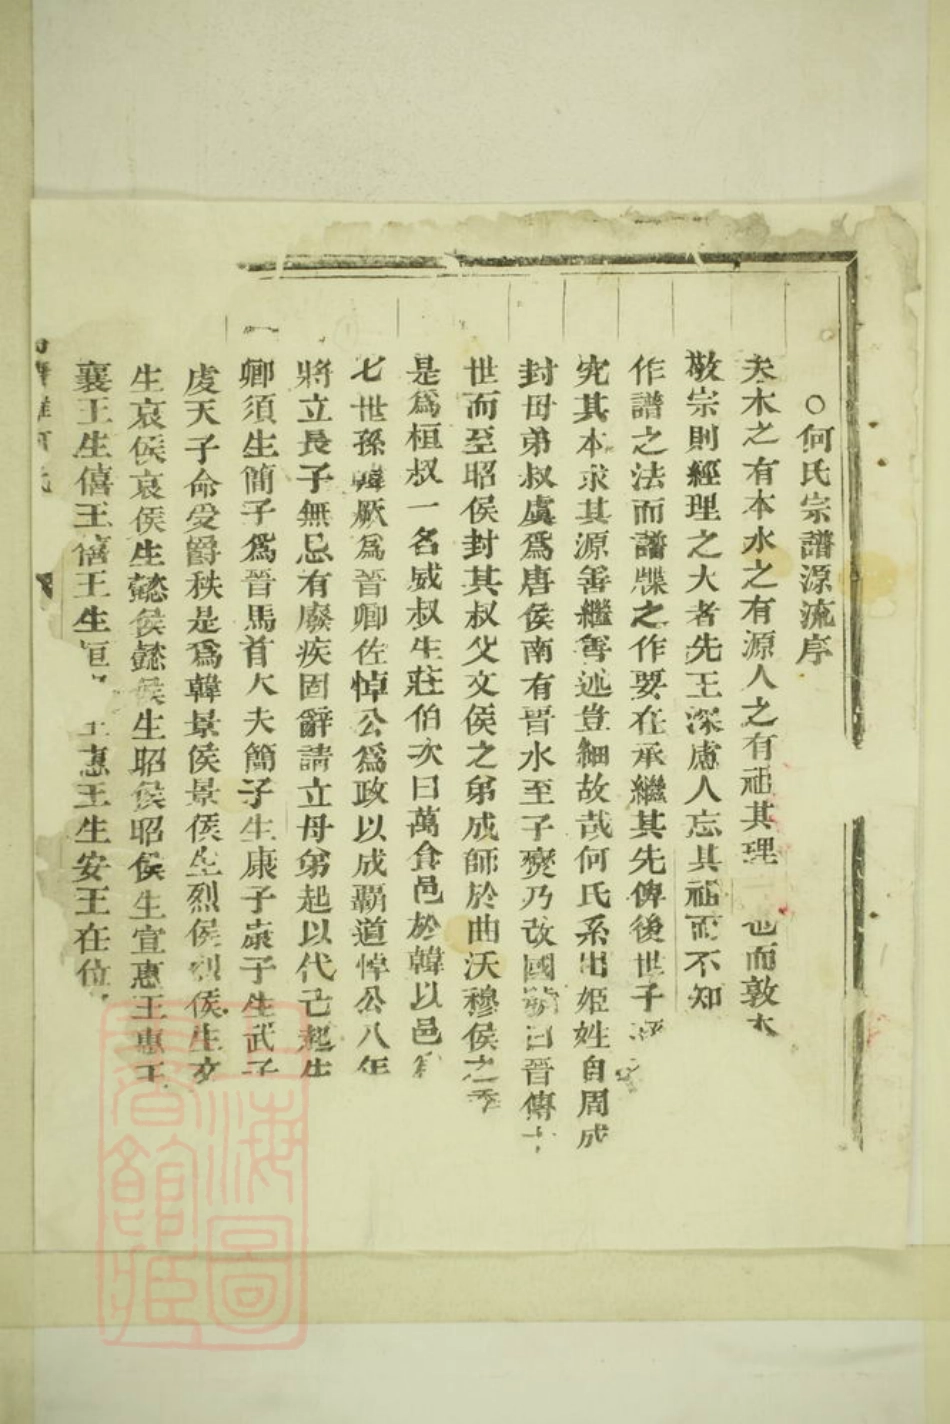 ○何氏宗譜源流序
夫木之有本水之有源人之有祖其理 也而敦本
敬宗則經理之大者先王深慮人忘其祖而不知
作譜之法而譜牒之作要在承繼其先俾後世子孫
究其本求其源善繼善述豈細故哉何氏系出姬姓自周成
封母弟叔虞爲唐侯南有晋水至子燮乃改國號曰晉傳
世而至昭侯封其叔父文侯之弟成師於曲沃穆侯之季
是爲桓叔一名威叔生莊伯次曰萬食邑於韓以邑爲
七世孫韓厥爲晉卿佐悼公爲政以成霸道悼公八年
將立長子無忌有廢疾固辭請立母弟起以代己起生
卿須生簡子爲晉馬首大夫簡子生康子康子生武子
虔天子命受爵秩是爲韓景侯景侯生烈侯烈侯生文
生哀侯哀侯生懿侯懿侯生昭侯昭侯生宣惠王惠王
襄王生僖王僖王生桓 王惠王生安王在位
何氏
上海圖書館藏